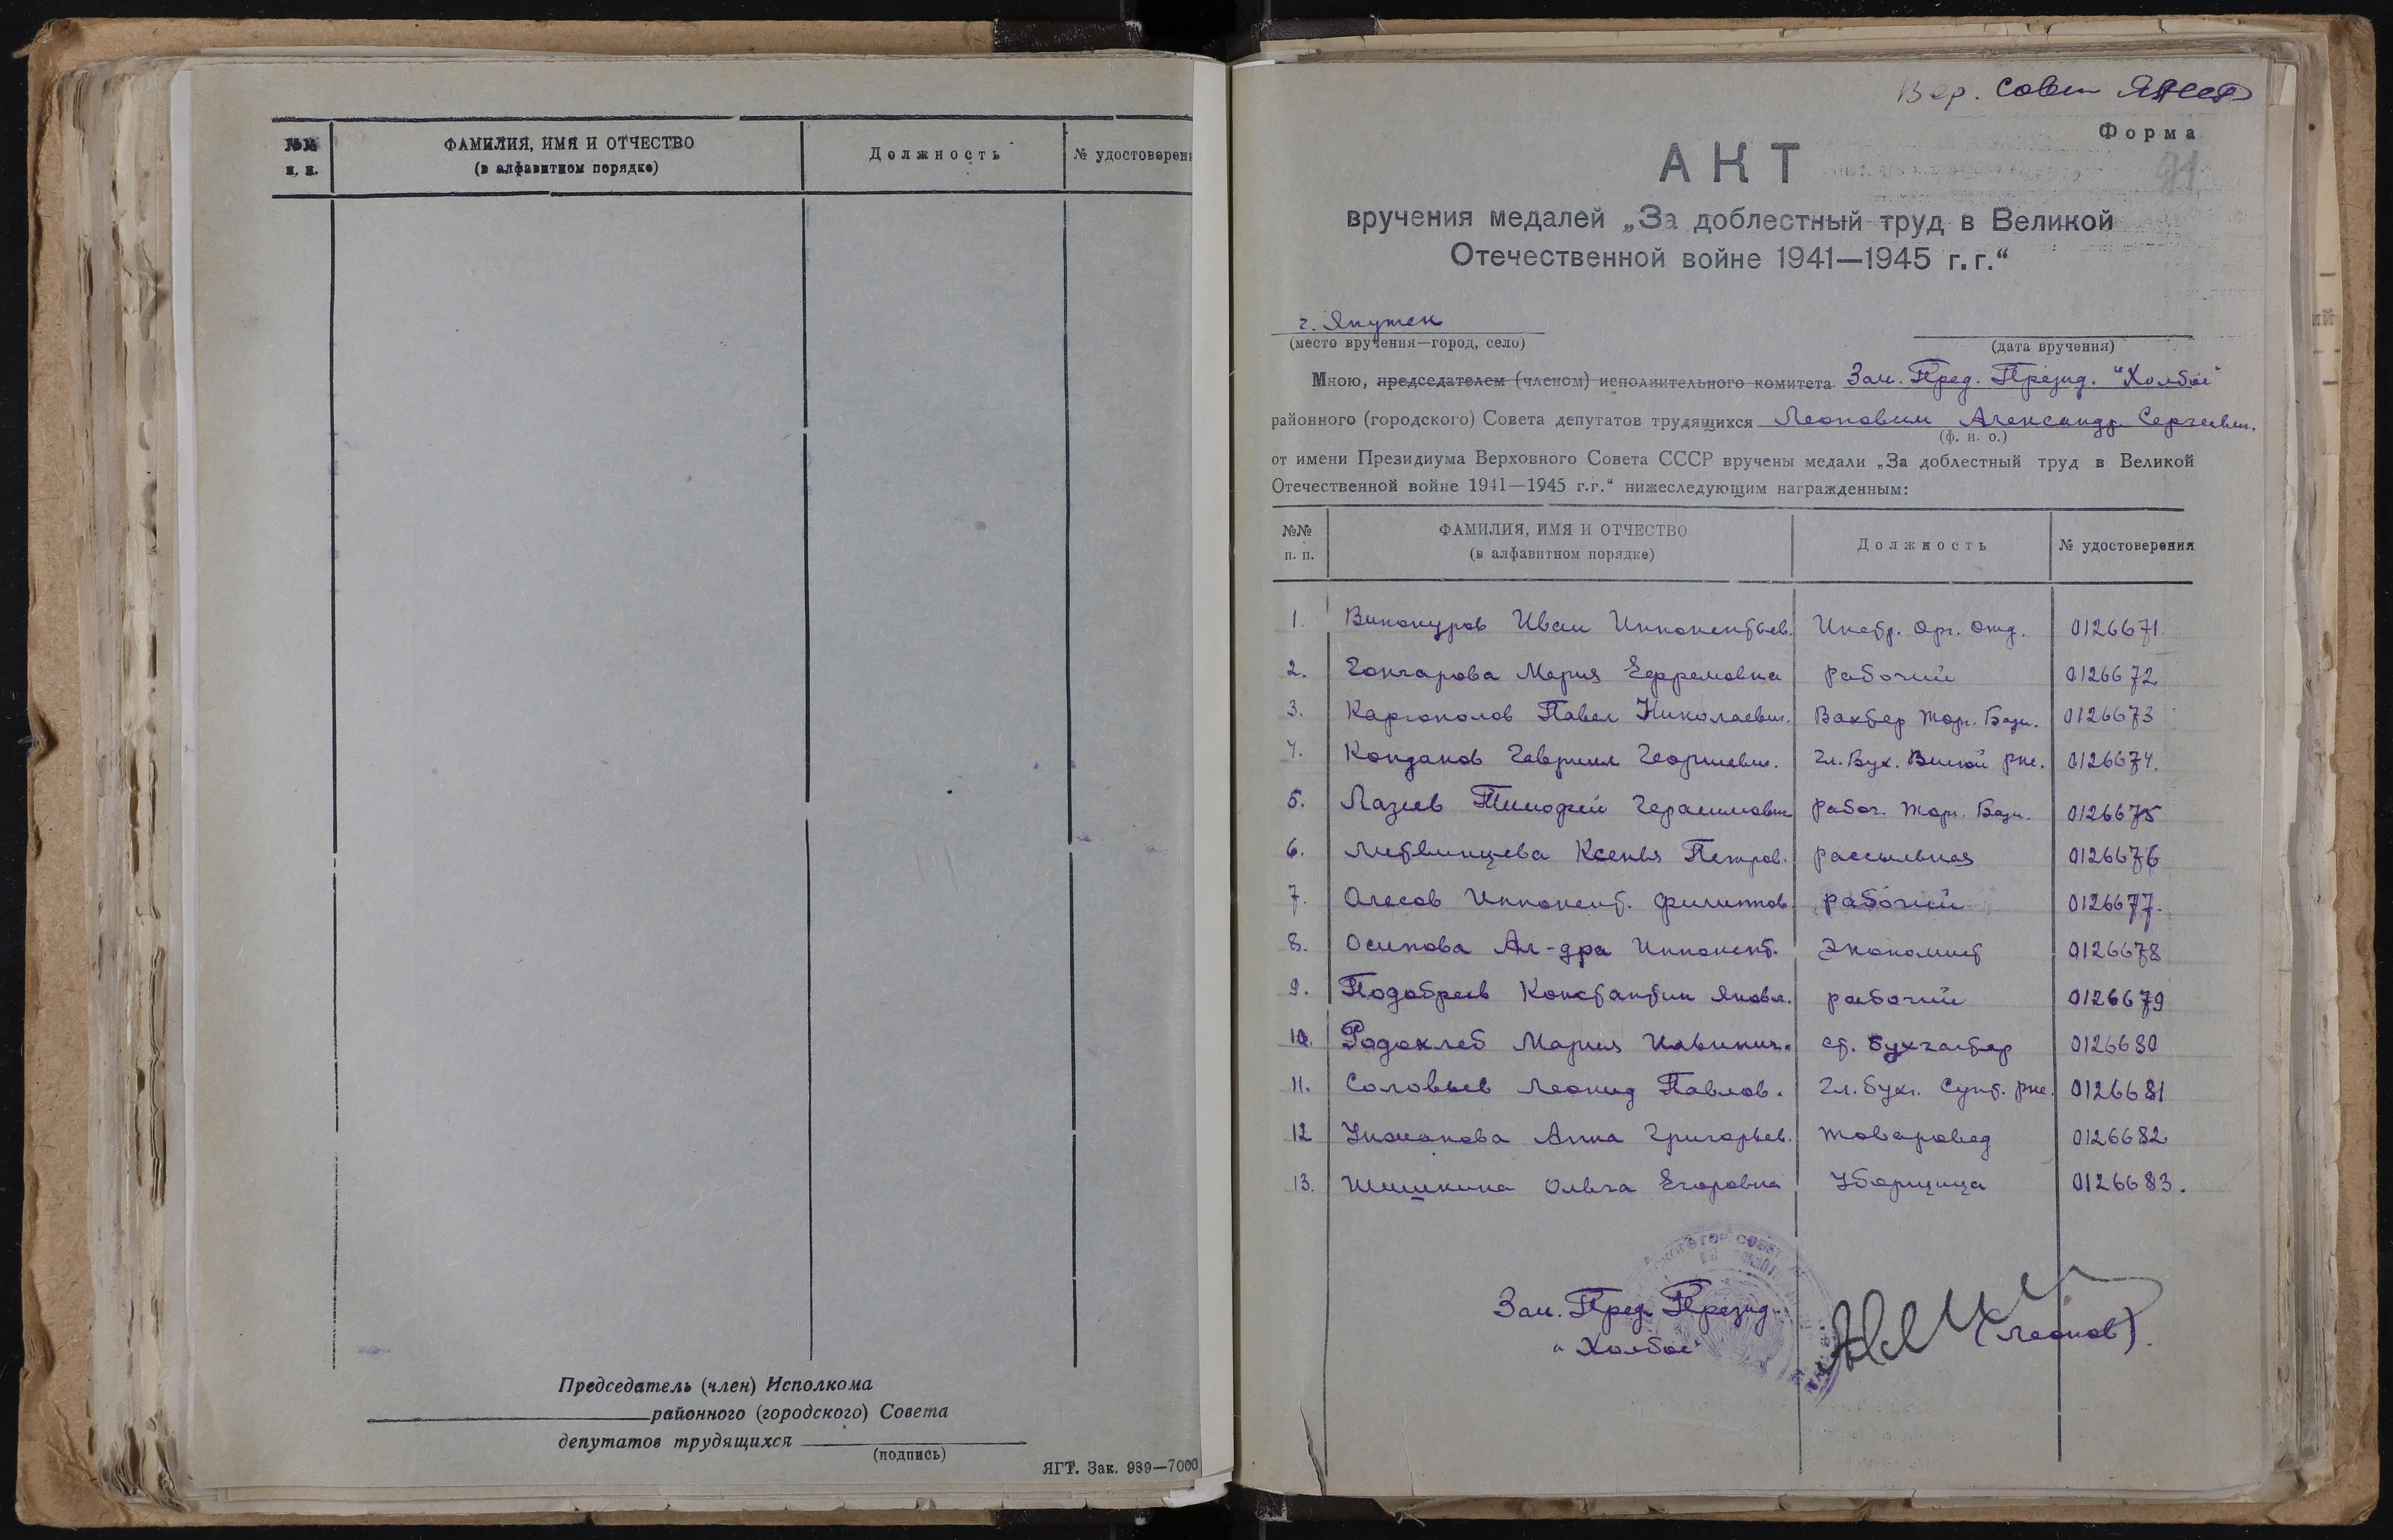 №№ п. п.
ФАМИЛИЯ, ИМЯ И ОТЧЕСТВО
(в алфавитном порядке)
Должность
№ удостоверен
Председатель (член) Исполкома
районного (городского) Совета
депутатов трудящихся
(подпись)
ЯГТ. Зак. 989—7000
Вер. Совет ЯАССР
Форма
91
АКТ
вручения медалей „За доблестный труд в Великой
Отечественной войне 1941—1945 г.г.“
г. Якутск
(место вручения—город, село)
(дата вручения)
Мною, председателем (членом) исполнительного комитета Зам. Пред. Презид. "Холбос"
районного (городского) Совета депутатов трудящихся Леоновым Александр Сергеевич.
(ф. и. о.)
от имени Президиума Верховного Совета СССР вручены медали „За доблестный труд в Великой
Отечественной войне 1941—1945 г.г.“ нижеследующим награжденным:
№№ п. п.
ФАМИЛИЯ, ИМЯ И ОТЧЕСТВО
(в алфавитном порядке)
Должность
№ удостоверения
1. Винокуров Иван Иннокентьев. Инстр. Орг. Отд. 0126671.
2. Гончарова Мария Ефремовна рабочий 0126672
3. Каргополов Павел Николаевич. Вахтер Торг. Базы. 0126673
4. Кондаков Гавриил Георгиевич. Гл. Бух. рпс. 0126674.
5. Лазиев Тимофей Герасимович Рабоч. Торг. Базы. 0126675
6. Литвинцева Ксенья Петров. рассыльная 0126676
7. Олесов Иннокент. Филиппов. рабочий 0126677.
8. Осипова Ал-дра Иннокент. Экономист 0126678
9. Подобреев Константин Яковл. рабочий 0126679
10. Родохлеб Мария Ильинич. ст. бухгалтер 0126680
11. Соловьев Леонид Павлов. Гл. бухг. Сунт. рпс. 0126681
12 Уколокова Анна Григорьев. Товаровед 0126682
13. Шишкина Ольга Егоровна Уборщица 0126683.
Зам. Пред. Презид.
"Холбос"
(Леонов).